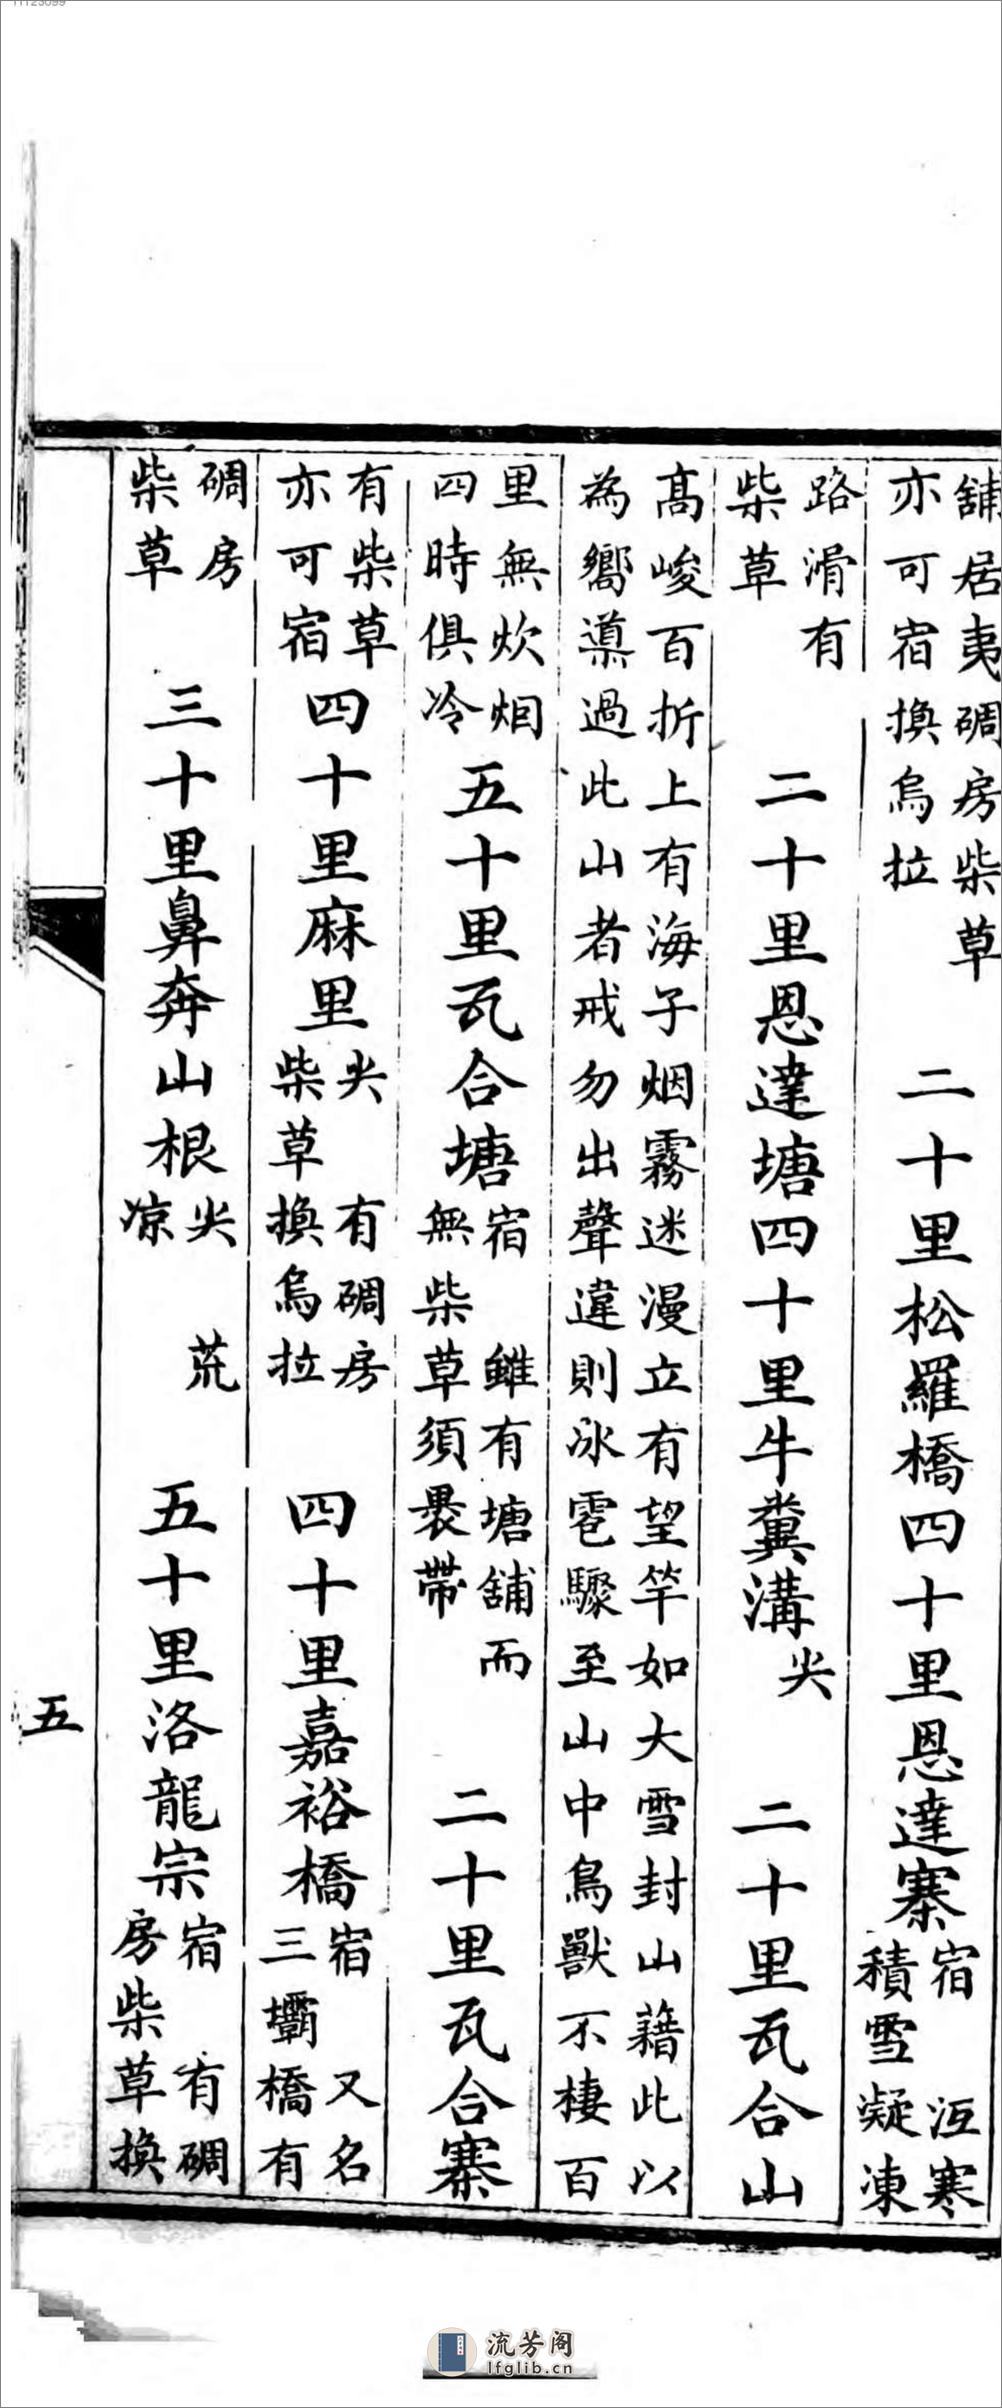 舖居夷碉房柴草
亦可宿換烏拉
二十里松羅橋四十里恩達寨
宿　沍寒
積雪凝凍
路滑有
柴草
二十里恩達塘四十里牛糞溝
尖
二十里瓦合山
高峻百折上有海子烟霧迷漫立有望竿如大雪封山藉此以
為嚮導過此山者戒勿出聲違則冰雹驟至山中鳥獸不棲百
里無炊烟
四時俱冷
五十里瓦合塘
宿　雖有塘舖而
無柴草須褁帶
二十里瓦合寨
有柴草
亦可宿
四十里麻里
尖　有碉房
柴草換烏拉
四十里嘉裕橋
宿　又名
三壩橋有
碉房
柴草
三十里鼻奔山根
尖　荒
凉
五十里洛龍宗
宿　有碉
房柴草換
五
流芳阁
lfglib.cn